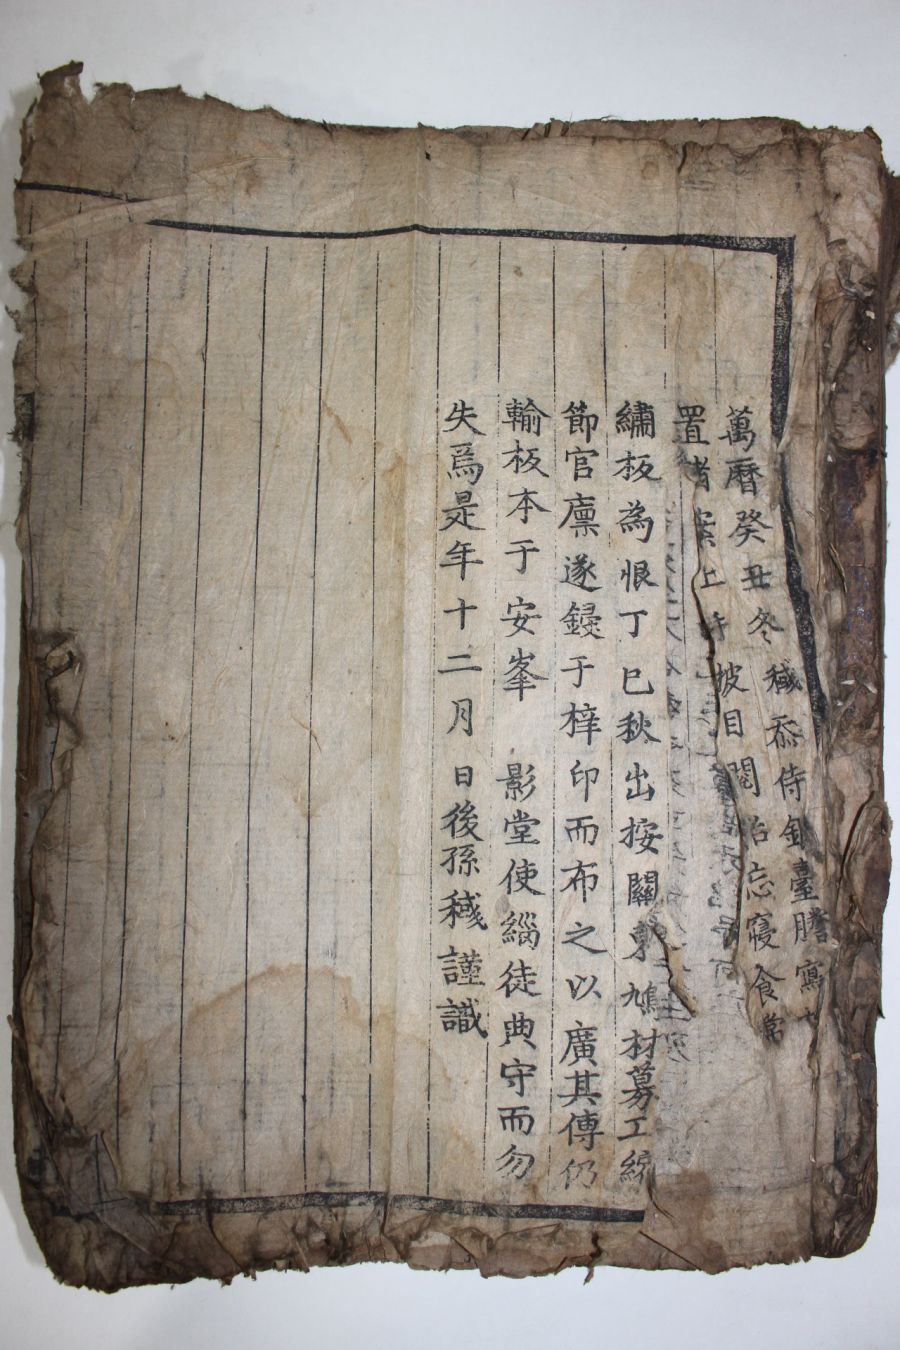 萬曆癸丑冬穢忝侍銀臺謄寫
置諸案上時披目閱忘寢食常
繡板為恨丁巳秋出按關東鳩材募工
節官廩遂鋟于梓印而布之以廣其傳仍
輸板本于安峯 影堂使緇徒典守而勿
失焉是年十二月 日後孫穢謹識